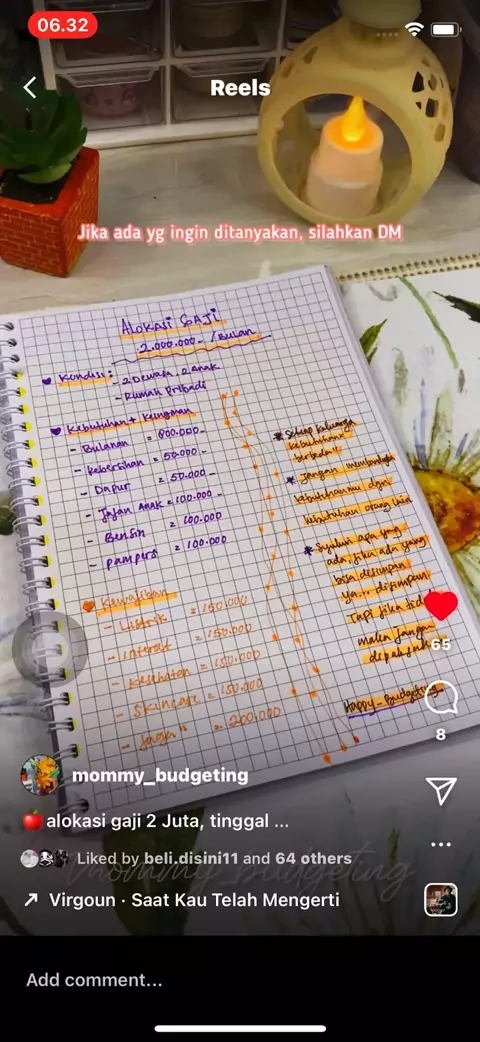 06.32
Reels
Jika ada yg ingin ditanyakan, silahkan DM
ALOKASI GAJI
2.000.000- /Bulan
Kondisi :
- 2 Dewasa, 2 Anak
- Rumah Pribadi
Kebutuhan + Keinginan
- Bulanan = 800.000-
- Kebersihan = 50.000-
- Dapur = 50.000-
- Jajan Anak = 100.000-
- Bensin = 100.000-
- pampers = 100.000-
* Setiap keluarga
kebutuhannya
berbeda!!
* Jangan
kebutuhanmu dgn
kebutuhan orang lain
* Syukuri apa yang
ada, jika ada yang
bisa disimpan
ya.. disimpan.
Tapi jika
jangan
Happy - Budgeting
Kewajiban
- Listrik = 150.000
- Internet = 150.000
- Kesehatan = 150.000
- Skincare = 150.000
- Jaga" = 200.000
65
8
mommy_budgeting
alokasi gaji 2 Juta, tinggal ...
Liked by beli.disini11 and 64 others
mommy_budgeting
Virgoun · Saat Kau Telah Mengerti
Add comment...